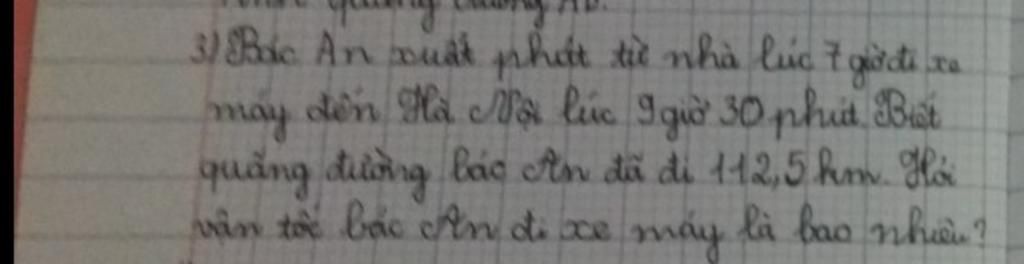 quãng đường AB.
3) Bác An xuất phát từ nhà lúc 7 giờ đi xe
máy đến Hà Nội lúc 9 giờ 30 phút. Biết
quãng đường bác An đã đi 112,5 km. Hỏi
vận tốc bác An đi xe máy là bao nhiêu?